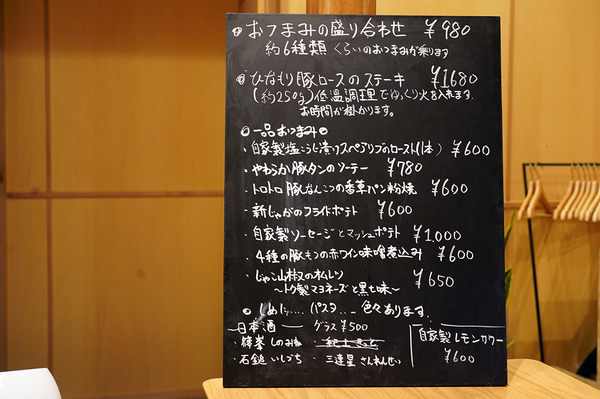 ◎おつまみの盛り合わせ ¥980
約6種類くらいのおつまみが乗ります
◎ひなもり豚ロースのステーキ ¥1680
(約250g)低温調理でゆっくり火を入れます。
お時間が掛かります。
◎一品おつまみ◎
・自家製塩こうじ漬けスペアリブのロースト(1本) ¥600
・やわらか豚タンのソーテー ¥780
・トロトロ豚なんこつの香草パン粉焼 ¥600
・新じゃがのフライドポテト ¥600
・自家製ソーセージとマッシュポテト ¥1,000
・4種の豚もつの赤ワイン味噌煮込み ¥600
・じゃこ山椒のオムレツ ¥650
〜トク製マヨネーズと黒七味〜
◎〆めに.... パスタ... 色々あります.
〜日本酒 グラス¥500
・篠峯 しのみね
・石鎚 いしづち ・三連星 さんれんせい
自家製レモンサワー
¥600